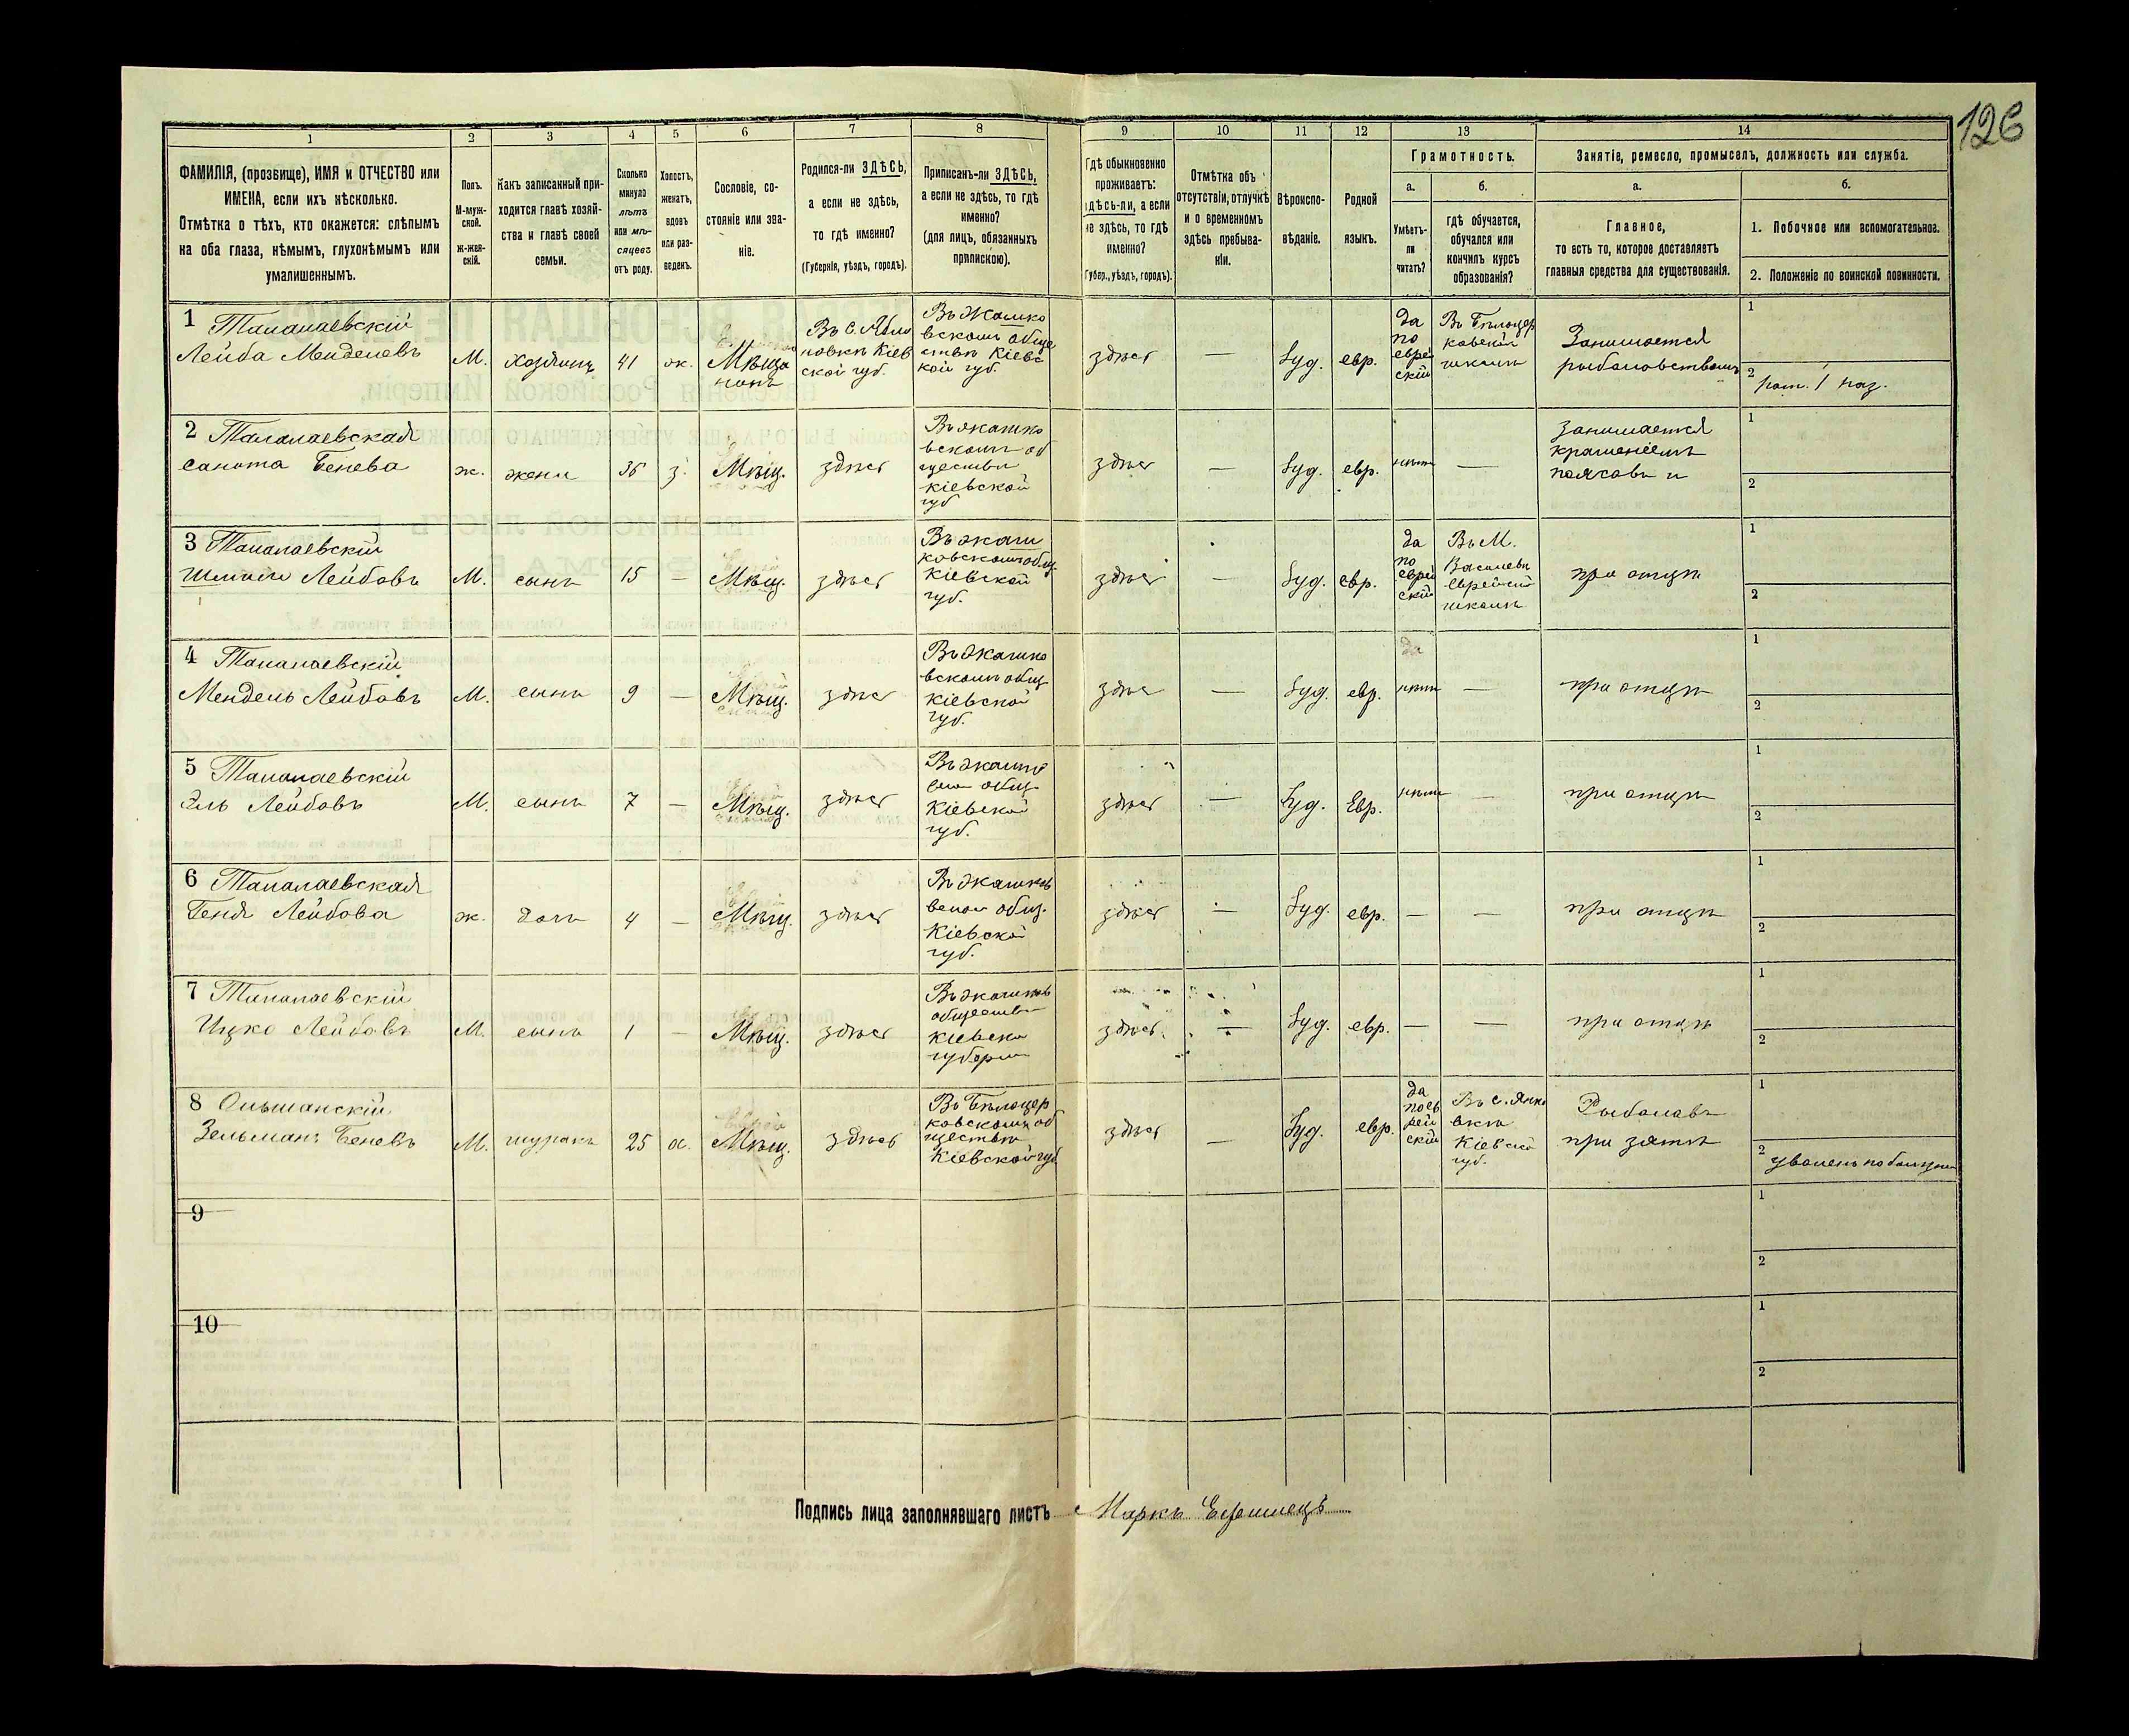 126
1 2 3 4 5 6 7 8 9 10 11 12 13 14
ФАМИЛІЯ, (прозвище), ИМЯ и ОТЧЕСТВО или
ИМЕНА, если ихъ нѣсколько.
Отмѣтка о тѣхъ, кто окажется: слѣпымъ
на оба глаза, нѣмымъ, глухонѣмымъ или
умалишеннымъ.
Полъ.
М-муж-
ской.
ж-жен-
скій.
Какъ записанный при-
ходится главѣ хозяй-
ства и главѣ своей
семьи.
Сколько
минуло
лѣтъ
или мѣ-
сяцевъ
отъ роду.
Холостъ,
женатъ,
вдовъ
или раз-
веденъ.
Сословіе, со-
стояніе или зва-
ніе.
Родился-ли ЗДѢСЬ,
а если не здѣсь,
то гдѣ именно?
(Губернія, уѣздъ, городъ).
Приписанъ-ли ЗДѢСЬ,
а если не здѣсь, то гдѣ
именно?
(для лицъ, обязанныхъ
припискою).
Гдѣ обыкновенно
проживаетъ:
здѣсь-ли, а если
не здѣсь, то гдѣ
именно?
(Губер., уѣздъ, городъ).
Отмѣтка объ
отсутствіи, отлучкѣ
и о временномъ
здѣсь пребыва-
ніи.
Вѣроиспо-
вѣданіе.
Родной
языкъ.
Грамотность.
а.
Умѣетъ-
ли
читать?
б.
гдѣ обучается,
обучался или
кончилъ курсъ
образованія?
Занятіе, ремесло, промыселъ, должность или служба.
а.
Главное,
то есть то, которое доставляетъ
главныя средства для существованія.
б.
1. Побочное или вспомогательное.
2. Положеніе по воинской повинности.
1 Талалаевскій
Лейба Менделевъ
М.
хозяинъ
41
ж.
Мѣща
нинъ
Въ с.
Кіев
ской губ.
Въ Жашко
вскомъ обще
ствѣ Кіевс
кой губ.
здѣсь
—
Іуд.
евр.
да
по
еврей
скій
Въ Бѣлоцер
ковской
школѣ
Занимается
рыболовствомъ
1
2
рат. 1 раз.
2 Талалаевская
Бенева
ж.
жена
36
з.
Мѣщ.
здѣсь
Въ жашко
вскомъ об
ществѣ
кіевской
губ
здѣсь
—
Іуд.
евр.
нѣтъ
—
занимается
крашеніемъ
поясовъ и
1
2
3 Талалаевскій
Лейбовъ
М.
сынъ
15
—
Мѣщ.
здѣсь
Въ жаш
ковскомъ общ.
Кіевской
губ.
здѣсь
—
Іуд.
евр.
да
по
еврей
скій
Въ М.
Василевѣ
еврейской
школѣ
при отцѣ
1
2
4 Талалаевскій
Мендель Лейбовъ
М.
сынъ
9
—
Мѣщ.
здѣсь
Въ Жашко
вскомъ общ.
Кіевской
губ.
здѣсь
—
Іуд.
евр.
да
нѣтъ
—
при отцѣ
1
2
5 Талалаевскій
Эль Лейбовъ
М.
сынъ
7
—
Мѣщ.
здѣсь
общ.
Кіевской
губ.
здѣсь
—
Іуд.
Евр.
нѣтъ
—
при отцѣ
1
2
6 Талалаевская
Геня Лейбова
ж.
дочь
4
—
Мѣщ.
здѣсь
Въ Жашков
общ.
Кіевской
губ.
здѣсь
—
Іуд.
евр.
—
—
при отцѣ
1
2
7 Талалаевскій
Ицко Лейбовъ
М.
сынъ
1
—
Мѣщ.
здѣсь
Въ жашков
обществѣ
кіевско
губерни
здѣсь
—
Іуд.
евр.
—
—
при отцѣ
1
2
8 Ольшанскій
Зельманъ Беневъ
М.
шуринъ
25
х.
Мѣщ.
здѣсь
Въ Бѣлоцер
ковскомъ об
ществѣ
Кіевской губ
здѣсь
—
Іуд.
евр.
да
по ев
рей
скій
Въ с. Янко
вкѣ
Кіевской
губ.
Рыболовъ
при зятѣ
1
2
уволенъ по болѣзни
9
1
2
10
1
2
Подпись лица заполнявшаго листъ Маркъ